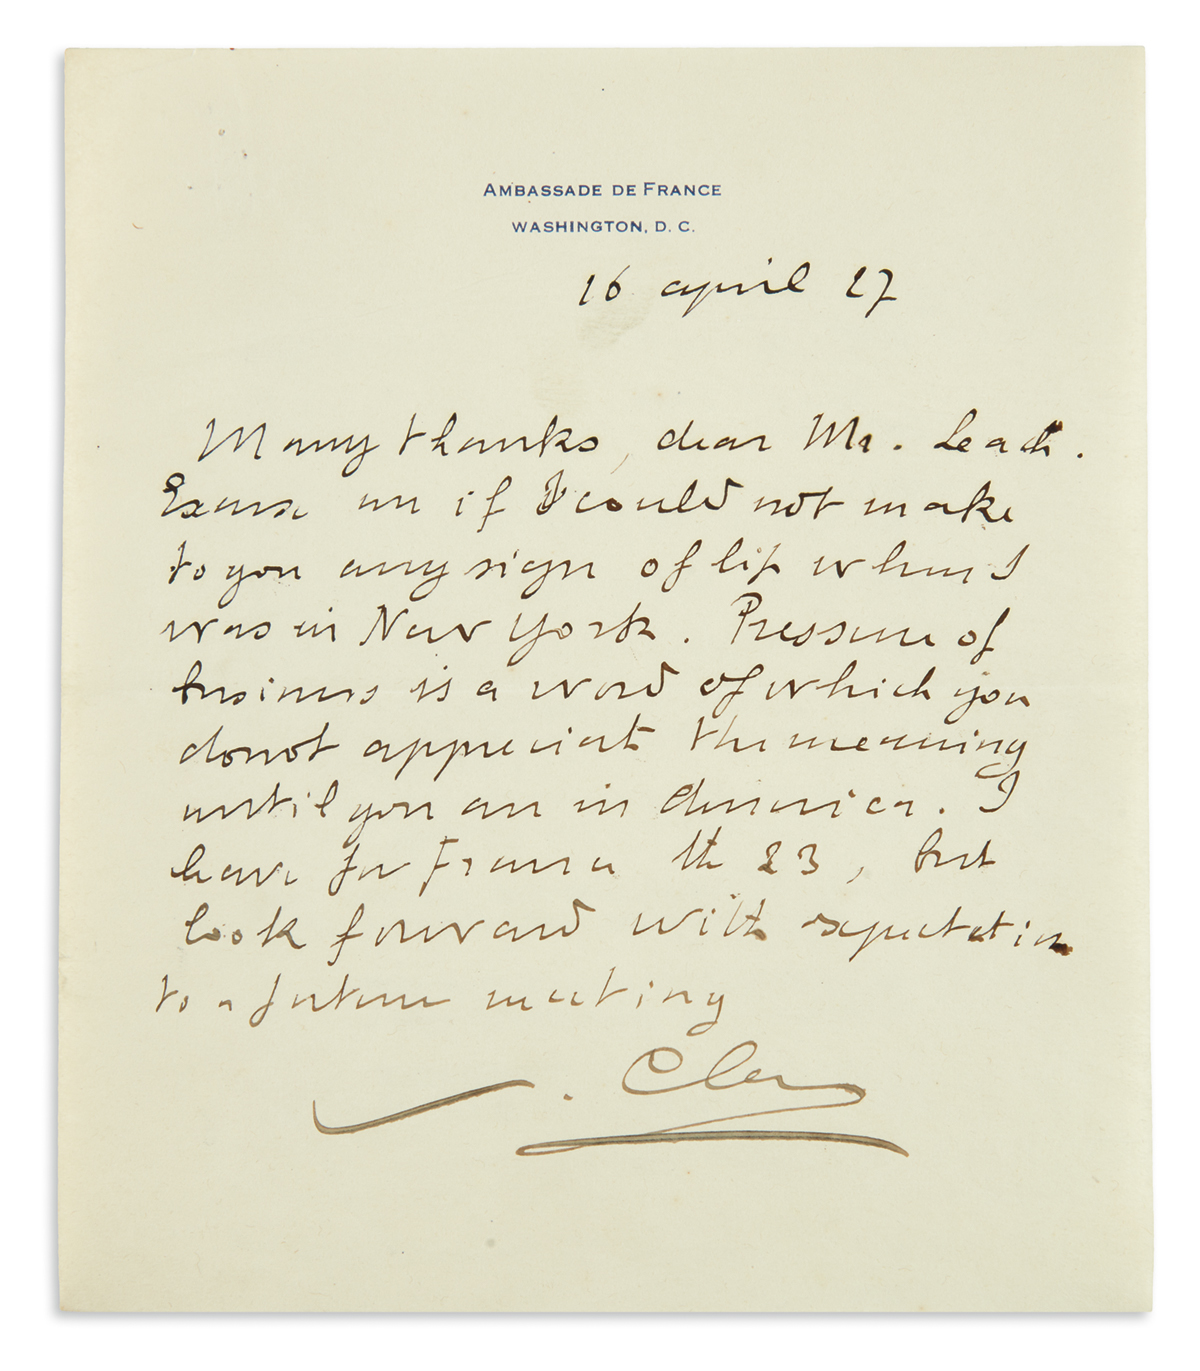 AMBASSADE DE FRANCE
WASHINGTON, D. C.
16 april 27
Many thanks, dear Mr. Leach.
Excuse me if I could not make
to you any sign of life when I
was in New York. Pressure of
business is a word of which you
do not appreciate the meaning
until you are in America. I
leave for France the 23, but
look forward with expectation
to a future meeting